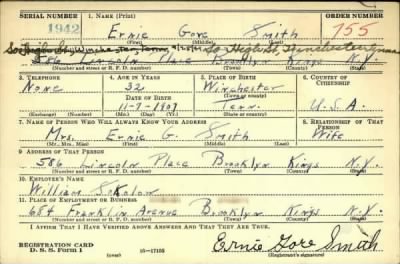 SERIAL NUMBER 1. NAME (Print) ORDER NUMBER
1942 Ernie Gore Smith 755
(First) (Middle) (Last)
586 Lincoln Place Brooklyn Kings N.Y.
(Number and street or R. F. D. number) (Town) (County) (State)
3. TELEPHONE 4. AGE IN YEARS 5. PLACE OF BIRTH 6. COUNTRY OF CITIZENSHIP
None 32 Winchester
DATE OF BIRTH (Town or county)
11-7-1907 Tenn. U.S.A.
(Exchange) (Number) (Mo.) (Day) (Yr.) (State or country)
7. NAME OF PERSON WHO WILL ALWAYS KNOW YOUR ADDRESS 8. RELATIONSHIP OF THAT PERSON
Mrs. Ernie G. Smith Wife
(Mr., Mrs., Miss) (First) (Middle) (Last)
9. ADDRESS OF THAT PERSON
586 Lincoln Place Brooklyn Kings N.Y.
(Number and street or R. F. D. number) (Town) (County) (State)
10. EMPLOYER'S NAME
William Sokolow
11. PLACE OF EMPLOYMENT OR BUSINESS
684 Franklin Avenue Brooklyn Kings N.Y.
(Number and street or R. F. D. number) (Town) (County) (State)
I AFFIRM THAT I HAVE VERIFIED ABOVE ANSWERS AND THAT THEY ARE TRUE.
REGISTRATION CARD
D. S. S. FORM 1 (over) 16-17105 Ernie Gore Smith
(Registrant's signature)